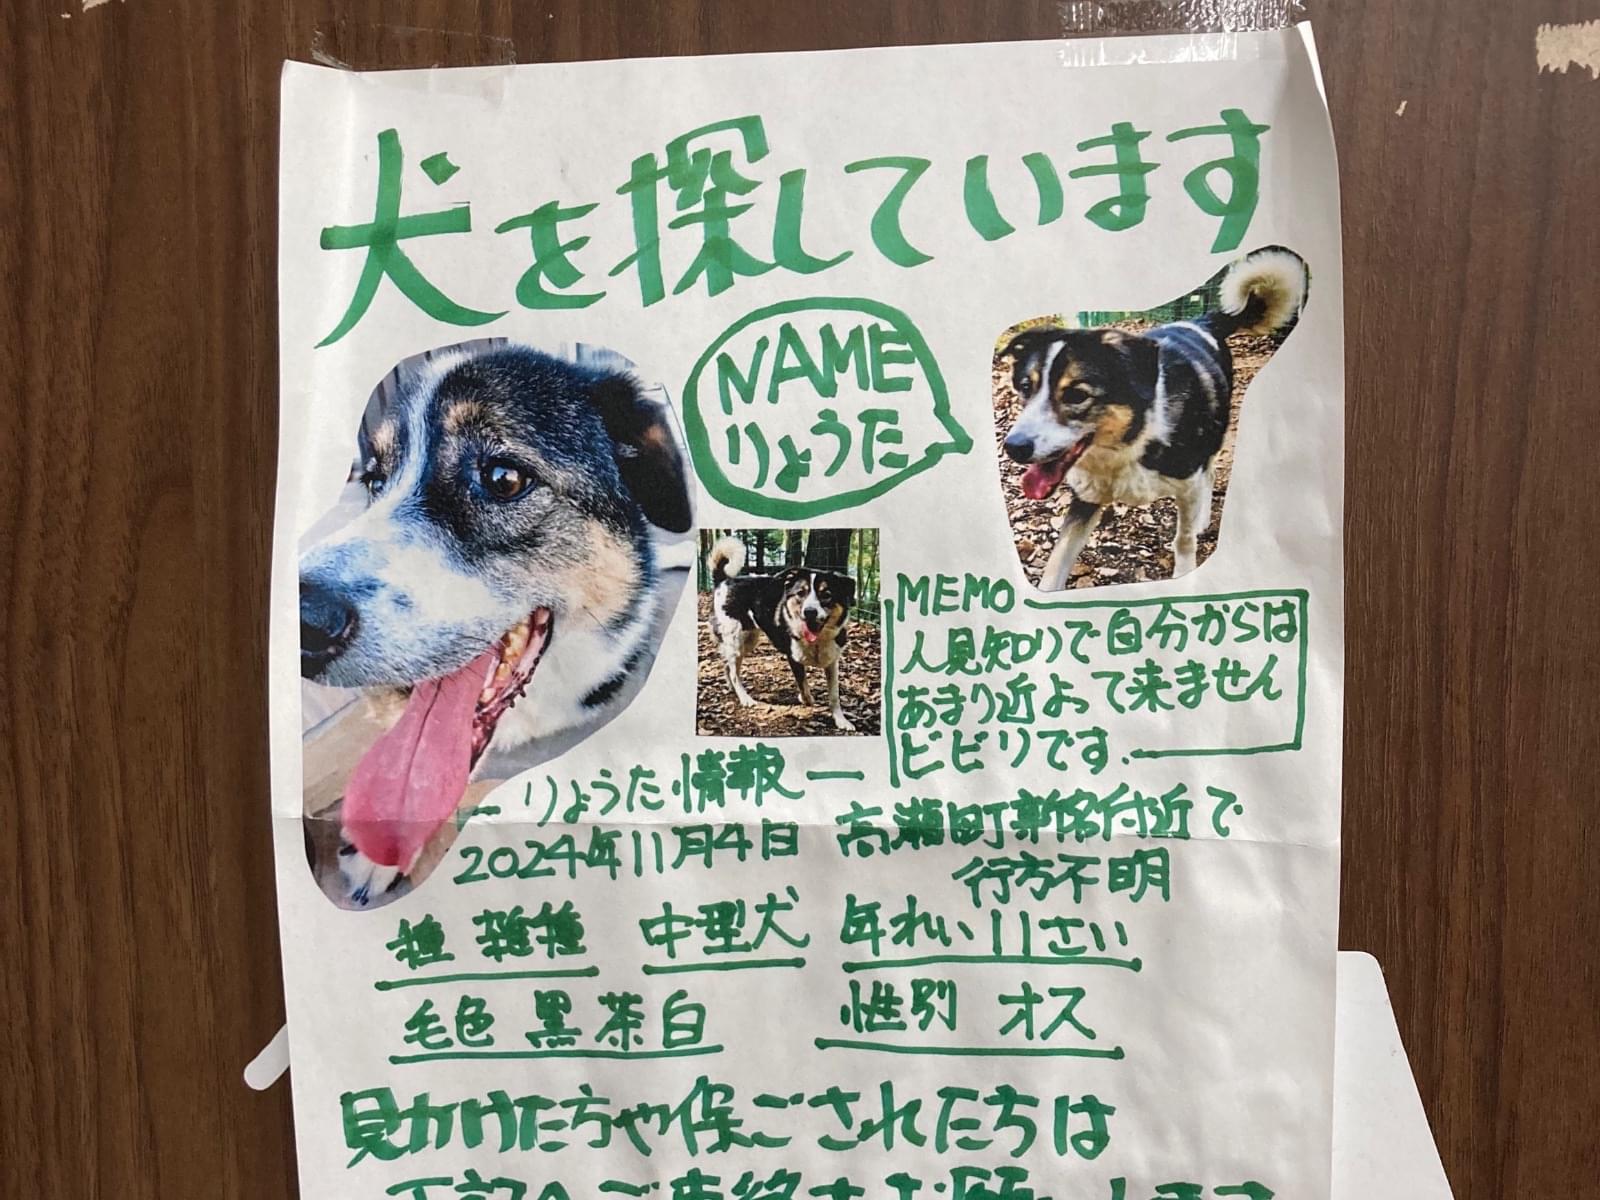 犬を探しています
NAME
りょうた
MEMO
人見知りで自分からは
あまり近よって来ません
ビビリです.
ー りょうた情報 ー
2024年11月4日 高瀬町新名付近で
行方不明
種 雑種 中型犬 年れい 11さい
毛色 黒茶白 性別 オス
見かけた方や保ごされたちは
下記へご連絡をお願いします